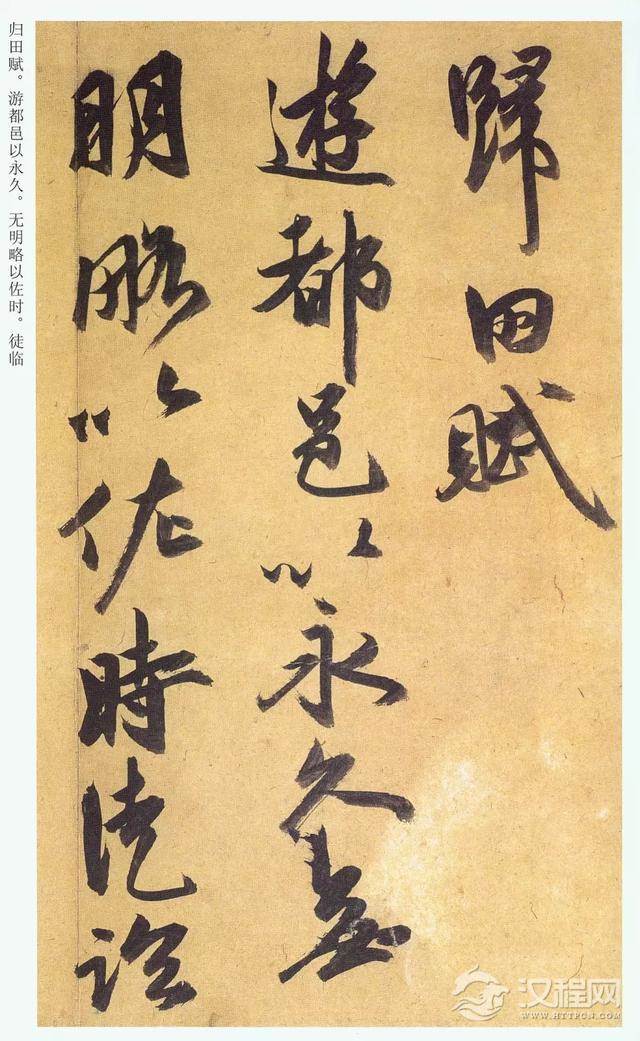 歸田賦
遊都邑以永久無
明略以佐時徒臨
归田赋。游都邑以永久。无明略以佐时。徒临
汉程网
WWW.HTTPCN.COM